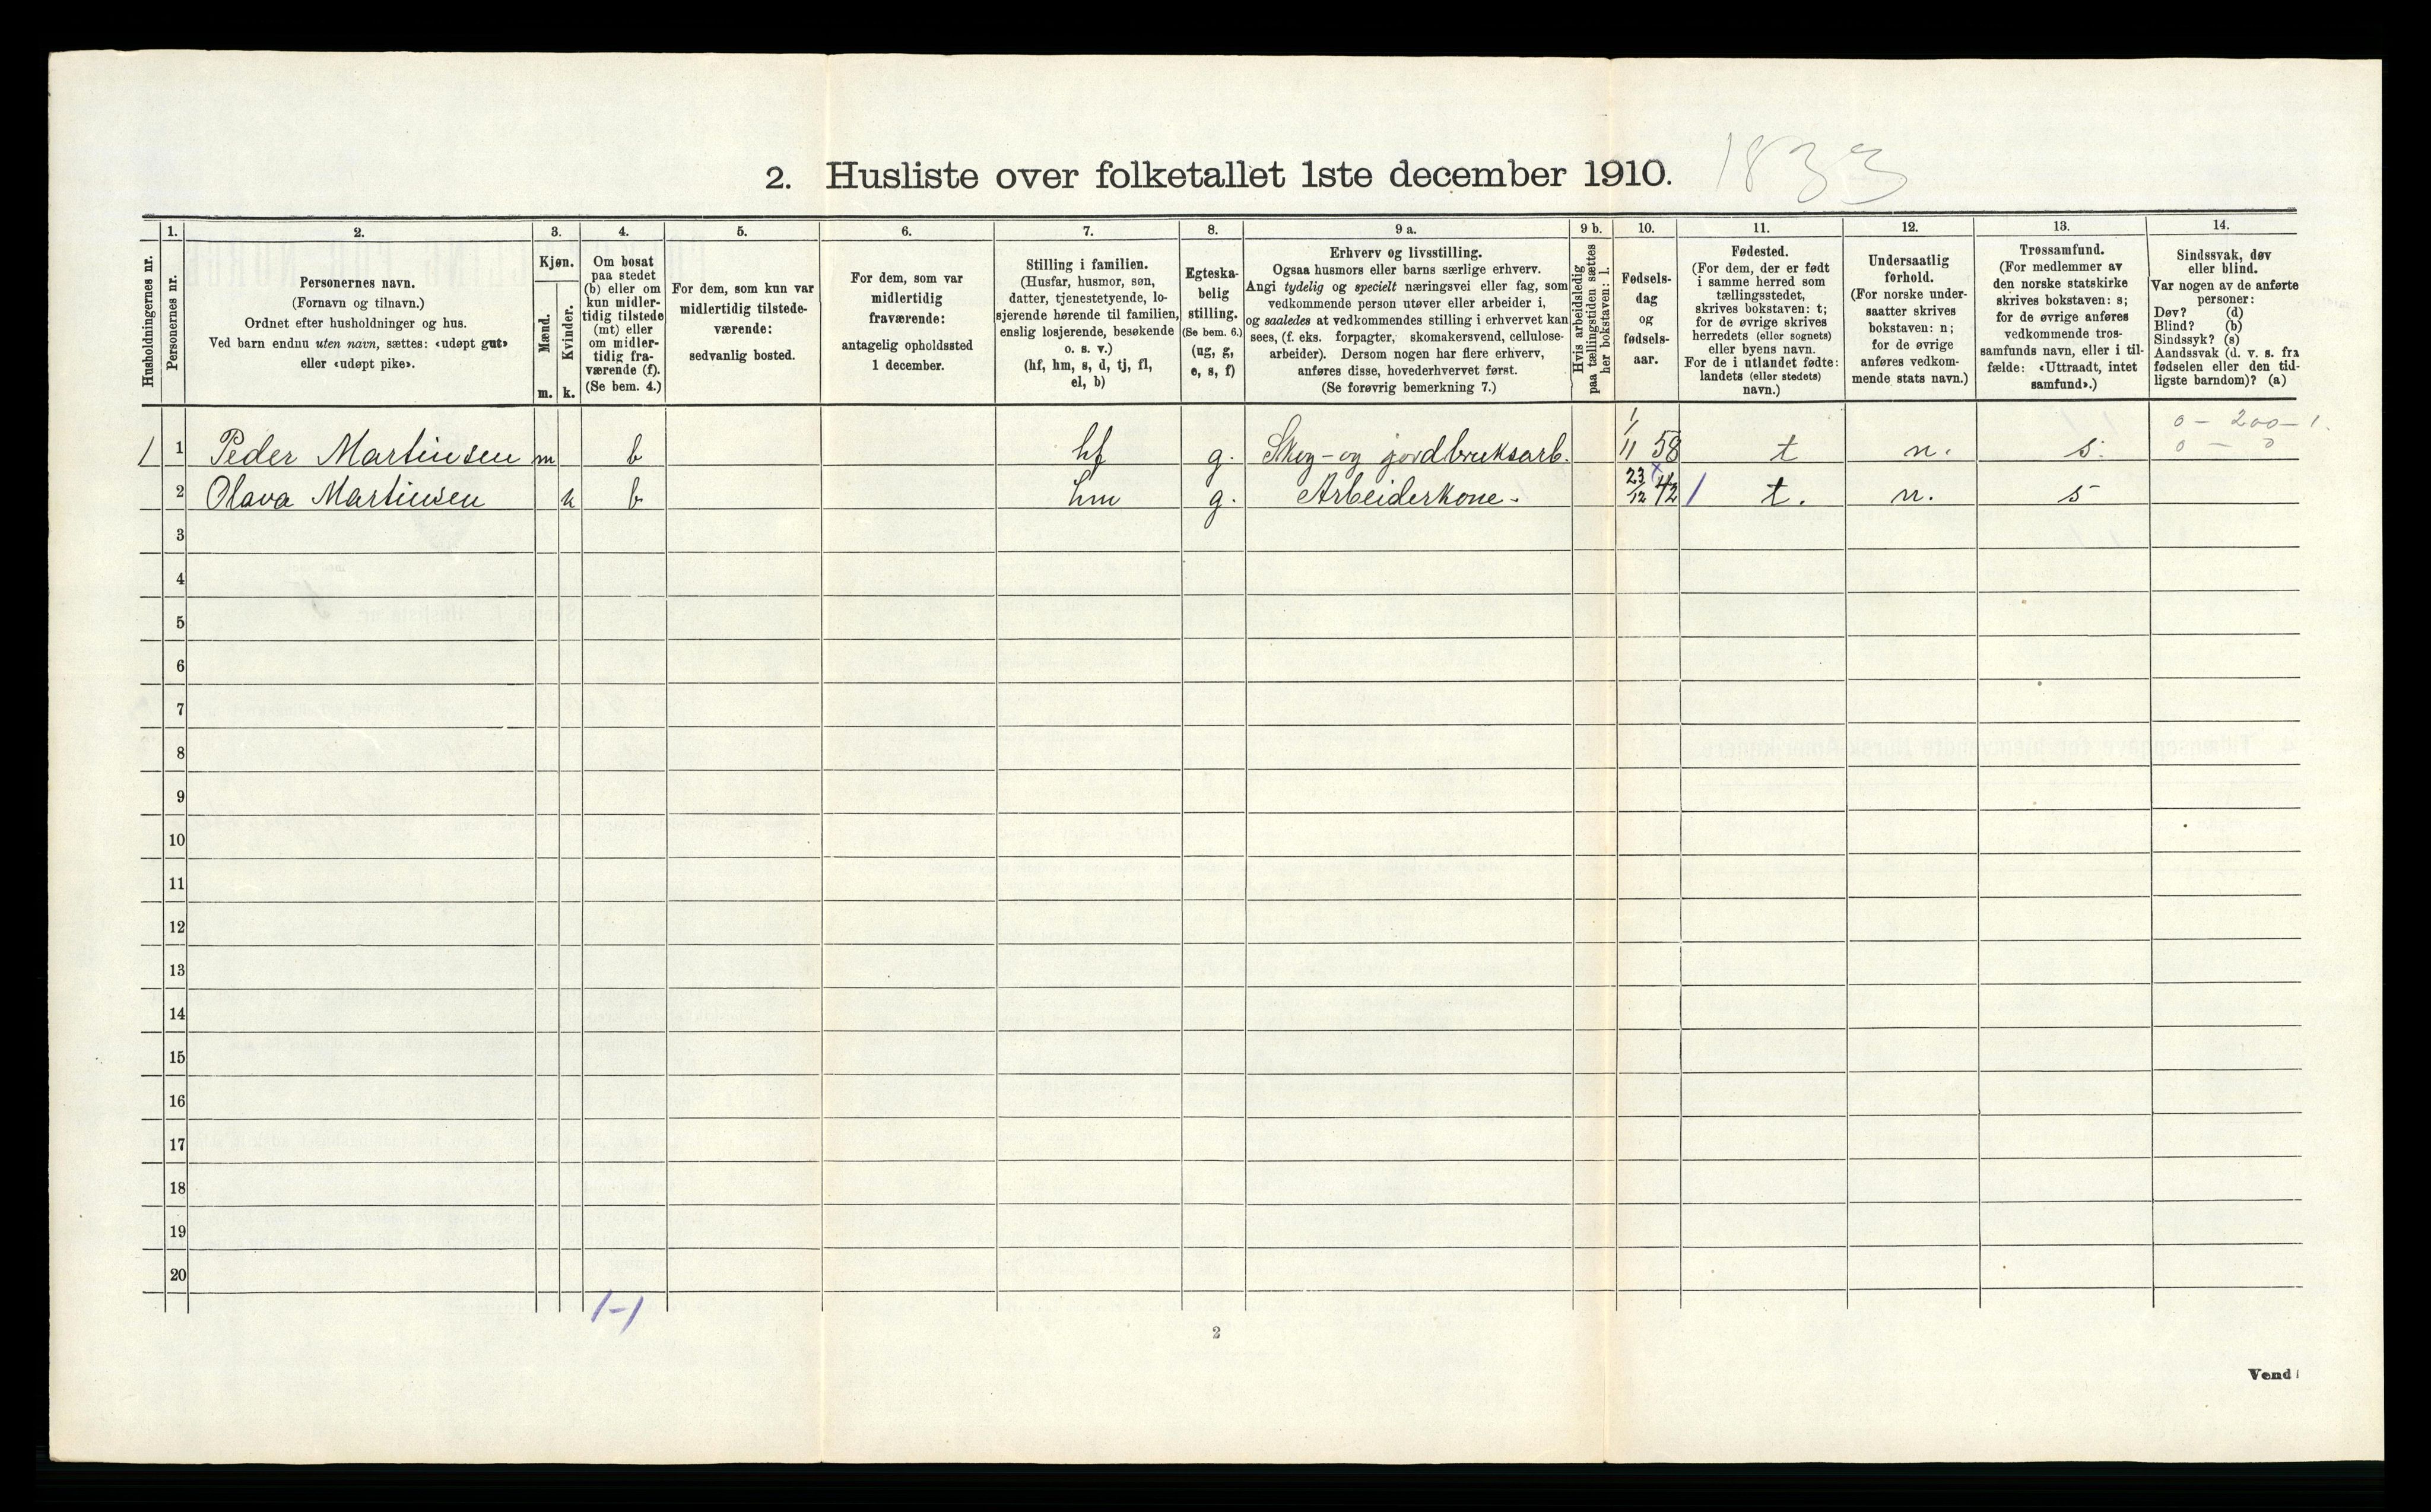 2. Husliste over folketallet 1ste december 1910. 1833
1. 2. 3. 4. 5. 6. 7. 8. 9 a. 9 b. 10. 11. 12. 13. 14.
Husholdningernes nr.
Personernes nr.
Personernes navn.
(Fornavn og tilnavn.)
Ordnet efter husholdninger og hus.
Ved barn endnu uten navn, sættes: «udøpt gut»
eller «udøpt pike».
Kjøn.
Mænd.
Kvinder.
m. k.
Om bosat
paa stedet
(b) eller om
kun midler-
tidig tilstede
(mt) eller
om midler-
tidig fra-
værende (f).
(Se bem. 4.)
For dem, som kun var
midlertidig tilstede-
værende:
sedvanlig bosted.
For dem, som var
midlertidig
fraværende:
antagelig opholdssted
1 december.
Stilling i familien.
(Husfar, husmor, søn,
datter, tjenestetyende, lo-
sjerende hørende til familien,
enslig losjerende, besøkende
o. s. v.)
(hf, hm, s, d, tj, fl,
el, b)
Egteska-
belig
stilling.
(Se bem. 6.)
(ug, g,
e, s, f)
Erhverv og livsstilling.
Ogsaa husmors eller barns særlige erhverv.
Angi tydelig og specielt næringsvei eller fag, som
vedkommende person utøver eller arbeider i,
og saaledes at vedkommendes stilling i erhvervet kan
sees, (f. eks. forpagter, skomakersvend, cellulose-
arbeider). Dersom nogen har flere erhverv,
anføres disse, hovederhvervet først.
(Se forøvrig bemerkning 7.)
Hvis arbeidsledig
paa tællingstiden sættes
her bokstaven: l.
Fødsels-
dag
og
fødsels-
aar.
Fødested.
(For dem, der er født
i samme herred som
tællingsstedet,
skrives bokstaven: t;
for de øvrige skrives
herredets (eller sognets)
eller byens navn.
For de i utlandet fødte:
landets (eller stedets)
navn.)
Undersaatlig
forhold.
(For norske under-
saatter skrives
bokstaven: n;
for de øvrige
anføres vedkom-
mende stats navn.)
Trossamfund.
(For medlemmer av
den norske statskirke
skrives bokstaven: s;
for de øvrige anføres
vedkommende tros-
samfunds navn, eller i til-
fælde: «Uttraadt, intet
samfund».)
Sindssvak, døv
eller blind.
Var nogen av de anførte
personer:
Døv? (d)
Blind? (b)
Sindssyk? (s)
Aandssvak (d. v. s. fra
fødselen eller den tid-
ligste barndom)? (a)
0 - 200 - 1.
0 - 0
1 1 Peder Martinsen m b hf g. Skog- og jordbruksarb. 1/11 58 t n. s.
2 Olava Martinsen k b hm g. Arbeiderkone. 23/12 42 t. n. s
3
4
5
6
7
8
9
10
11
12
13
14
15
16
17
18
19
20
1-1
2
Vend